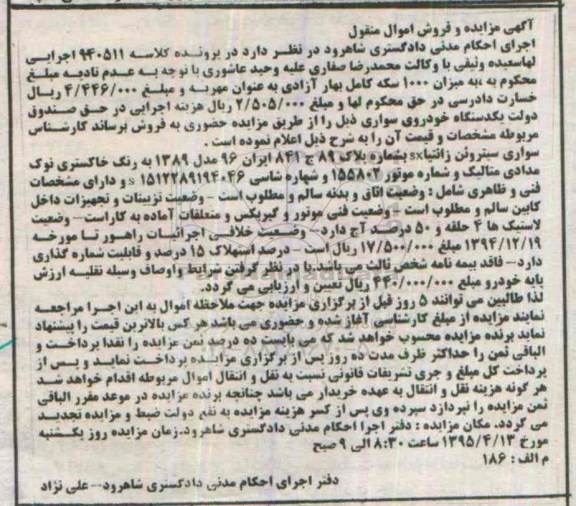 آگهی مزایده و فروش اموال منقول
اجرای احکام مدنی دادگستری شاهرود در نظر دارد در پرونده کلاسه ۹۴۰۵۱۱ اجرایی
لهاسعیده وثیقی با وکالت محمدرضا صفاری علیه وحید عاشوری با توجه به عدم تادیه مبلغ
محکوم به ،به میزان ۱۰۰۰ سکه کامل بهار آزادی به عنوان مهریه و مبلغ ۴/۴۴۶/۰۰۰ ریال
خسارت دادرسی در حق محکوم لها و مبلغ ۲/۵۰۵/۰۰۰ ریال هزینه اجرایی در حق صندوق
دولت یکدستگاه خودروی سواری ذیل را از طریق مزایده حضوری به فروش برساند کارشناس
مربوطه مشخصات و قیمت آن را به شرح ذیل اعلام نموده است .
سواری سیتروئن زانتیاsx بشماره پلاک ۸۹ ج ۸۴۱ ایران ۹۶ مدل ۱۳۸۹ به رنگ خاکستری نوک
مدادی متالیک و شماره موتور ۱۵۵۸۰۲ و شهاره شاسی s ۱۵۱۲۲۸۹۱۹۴۰۴۶ و دارای مشخصات
فنی و ظاهری شامل : وضعیت اتاق و بدنه سالم و مطلوب است - وضعیت تزیینات و تجهیزات داخل
کابین سالم و مطلوب است - وضعیت فنی موتور و گیربکس و متعلقات آماده به کاراست– وضعیت
لاستیک ها ۴ حلقه و ۵۰ درصد آج دارد– وضعیت خلافی اجرائیات راهور تا مورخه
۱۳۹۴/۱۲/۱۹ مبلغ ۱۷/۵۰۰/۰۰۰ ریال است– درصد استهلاک ۱۵ درصد و قابلیت شماره گذاری
دارد– فاقد بیمه نامه شخص ثالث می باشد.با در نظر گرفتن شرایط و اوصاف وسیله نقلیه ارزش
پایه خودرو مبلغ ۴۴۰/۰۰۰/۰۰۰ ریال تعیین و ارزیابی می گردد.
لذا طالبین می توانند ۵ روز قبل از برگزاری مزایده جهت ملاحظه اموال به این اجرا مراجعه
نمایند مزایده از مبلغ کارشناسی آغاز شده و حضوری می باشد هر کس بالاترین قیمت را پیشنهاد
نماید برنده مزایده محسوب خواهد شد که می بایست ده درصد ثمن مزایده را نقدا پرداخت و
الباقی ثمن را حداکثر ظرف مدت ده روز پس از برگزاری مزایده پرداخت نماید و پس از
پرداخت کل مبلغ و جری تشریفات قانونی نسبت به نقل و انتقال اموال مربوطه اقدام خواهد شد
هر گونه هزینه نقل و انتقال به عهده خریدار می باشد چنانچه برنده مزایده در موعد مقرر الباقی
ثمن مزایده را نپردازد سپرده وی پس از کسر هزینه مزایده به نفع دولت ضبط و مزایده تجدید
می گردد. مکان مزایده : دفتر اجرا احکام مدنی دادگستری شاهرود.زمان مزایده روز یکشنبه
مورخ ۱۳۹۵/۴/۱۳ ساعت ۸:۳۰ الی ۹ صبح
م الف : ۱۸۶
دفتر اجرای احکام مدنی دادگستری شاهرود– علی نژاد